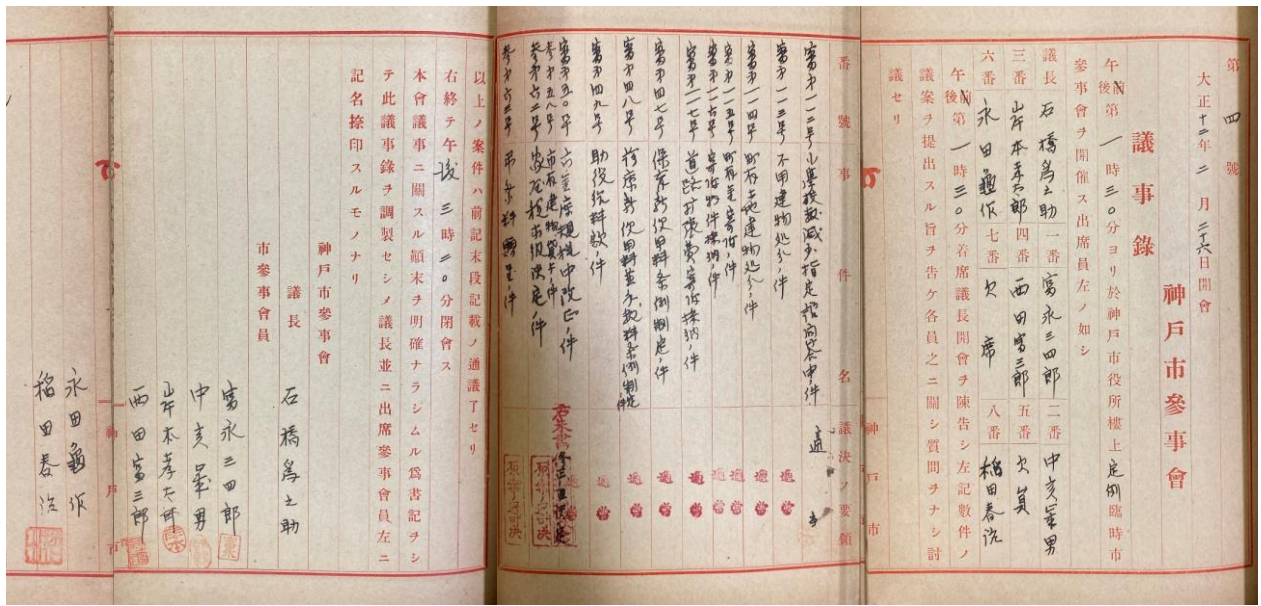 第四號
大正十二年二月二六日開會
神戸市參事會
議事錄
午後第一時三〇分ヨリ於神戸市役所樓上定例臨時市
參事會ヲ開催ス出席員左ノ如シ
議長 石橋為之助 一番 富永三四郎 二番 中亥軍男
三番 岸本孝太郎 四番 西田富三郎 五番 欠員
六番 永田龜作 七番 欠席 八番 稲田春治
午後第一時三〇分着席議長開會ヲ陳告シ左記數件ノ
議案ヲ提出スル旨ヲ告ケ各員之ニ關シ質問ヲナシ討
議セリ
神戸市
番號 事件名 議決ノ要領
審第一一二号 小學校數減少指定諮問答申ノ件
審第一一三号 不用建物処分ノ件
審第一一四号 町有土地建物処分ノ件
審第一一五号 町有金寄附ノ件
審第一一六号 寄附物件採納ノ件
審第一一七号 道路拡張費寄附採納ノ件
審第四七号 使用料条例制定ノ件
審第四八号 診療所使用料並手数料条例制定ノ件
審第四九号 助役給料額ノ件
審第五〇号 規程中改正ノ件
参第五八号 市有建物貸下ノ件
参第六二号 家屋税等級決定ノ件
参第六三号 弔祭料贈呈ノ件
以上ノ案件ハ前記末段記載ノ通議了セリ
右終テ午後三時二〇分閉會ス
本會議事ニ關スル顚末ヲ明確ナラシムル爲書記ヲシ
テ此議事錄ヲ調製セシメ議長並ニ出席參事會員左ニ
記名捺印スルモノナリ
神戸市參事會
議長 石橋為之助
市參事會員 富永三四郎
中亥軍男
岸本孝太郎
西田富三郎
神戸市
永田龜作
稲田春治